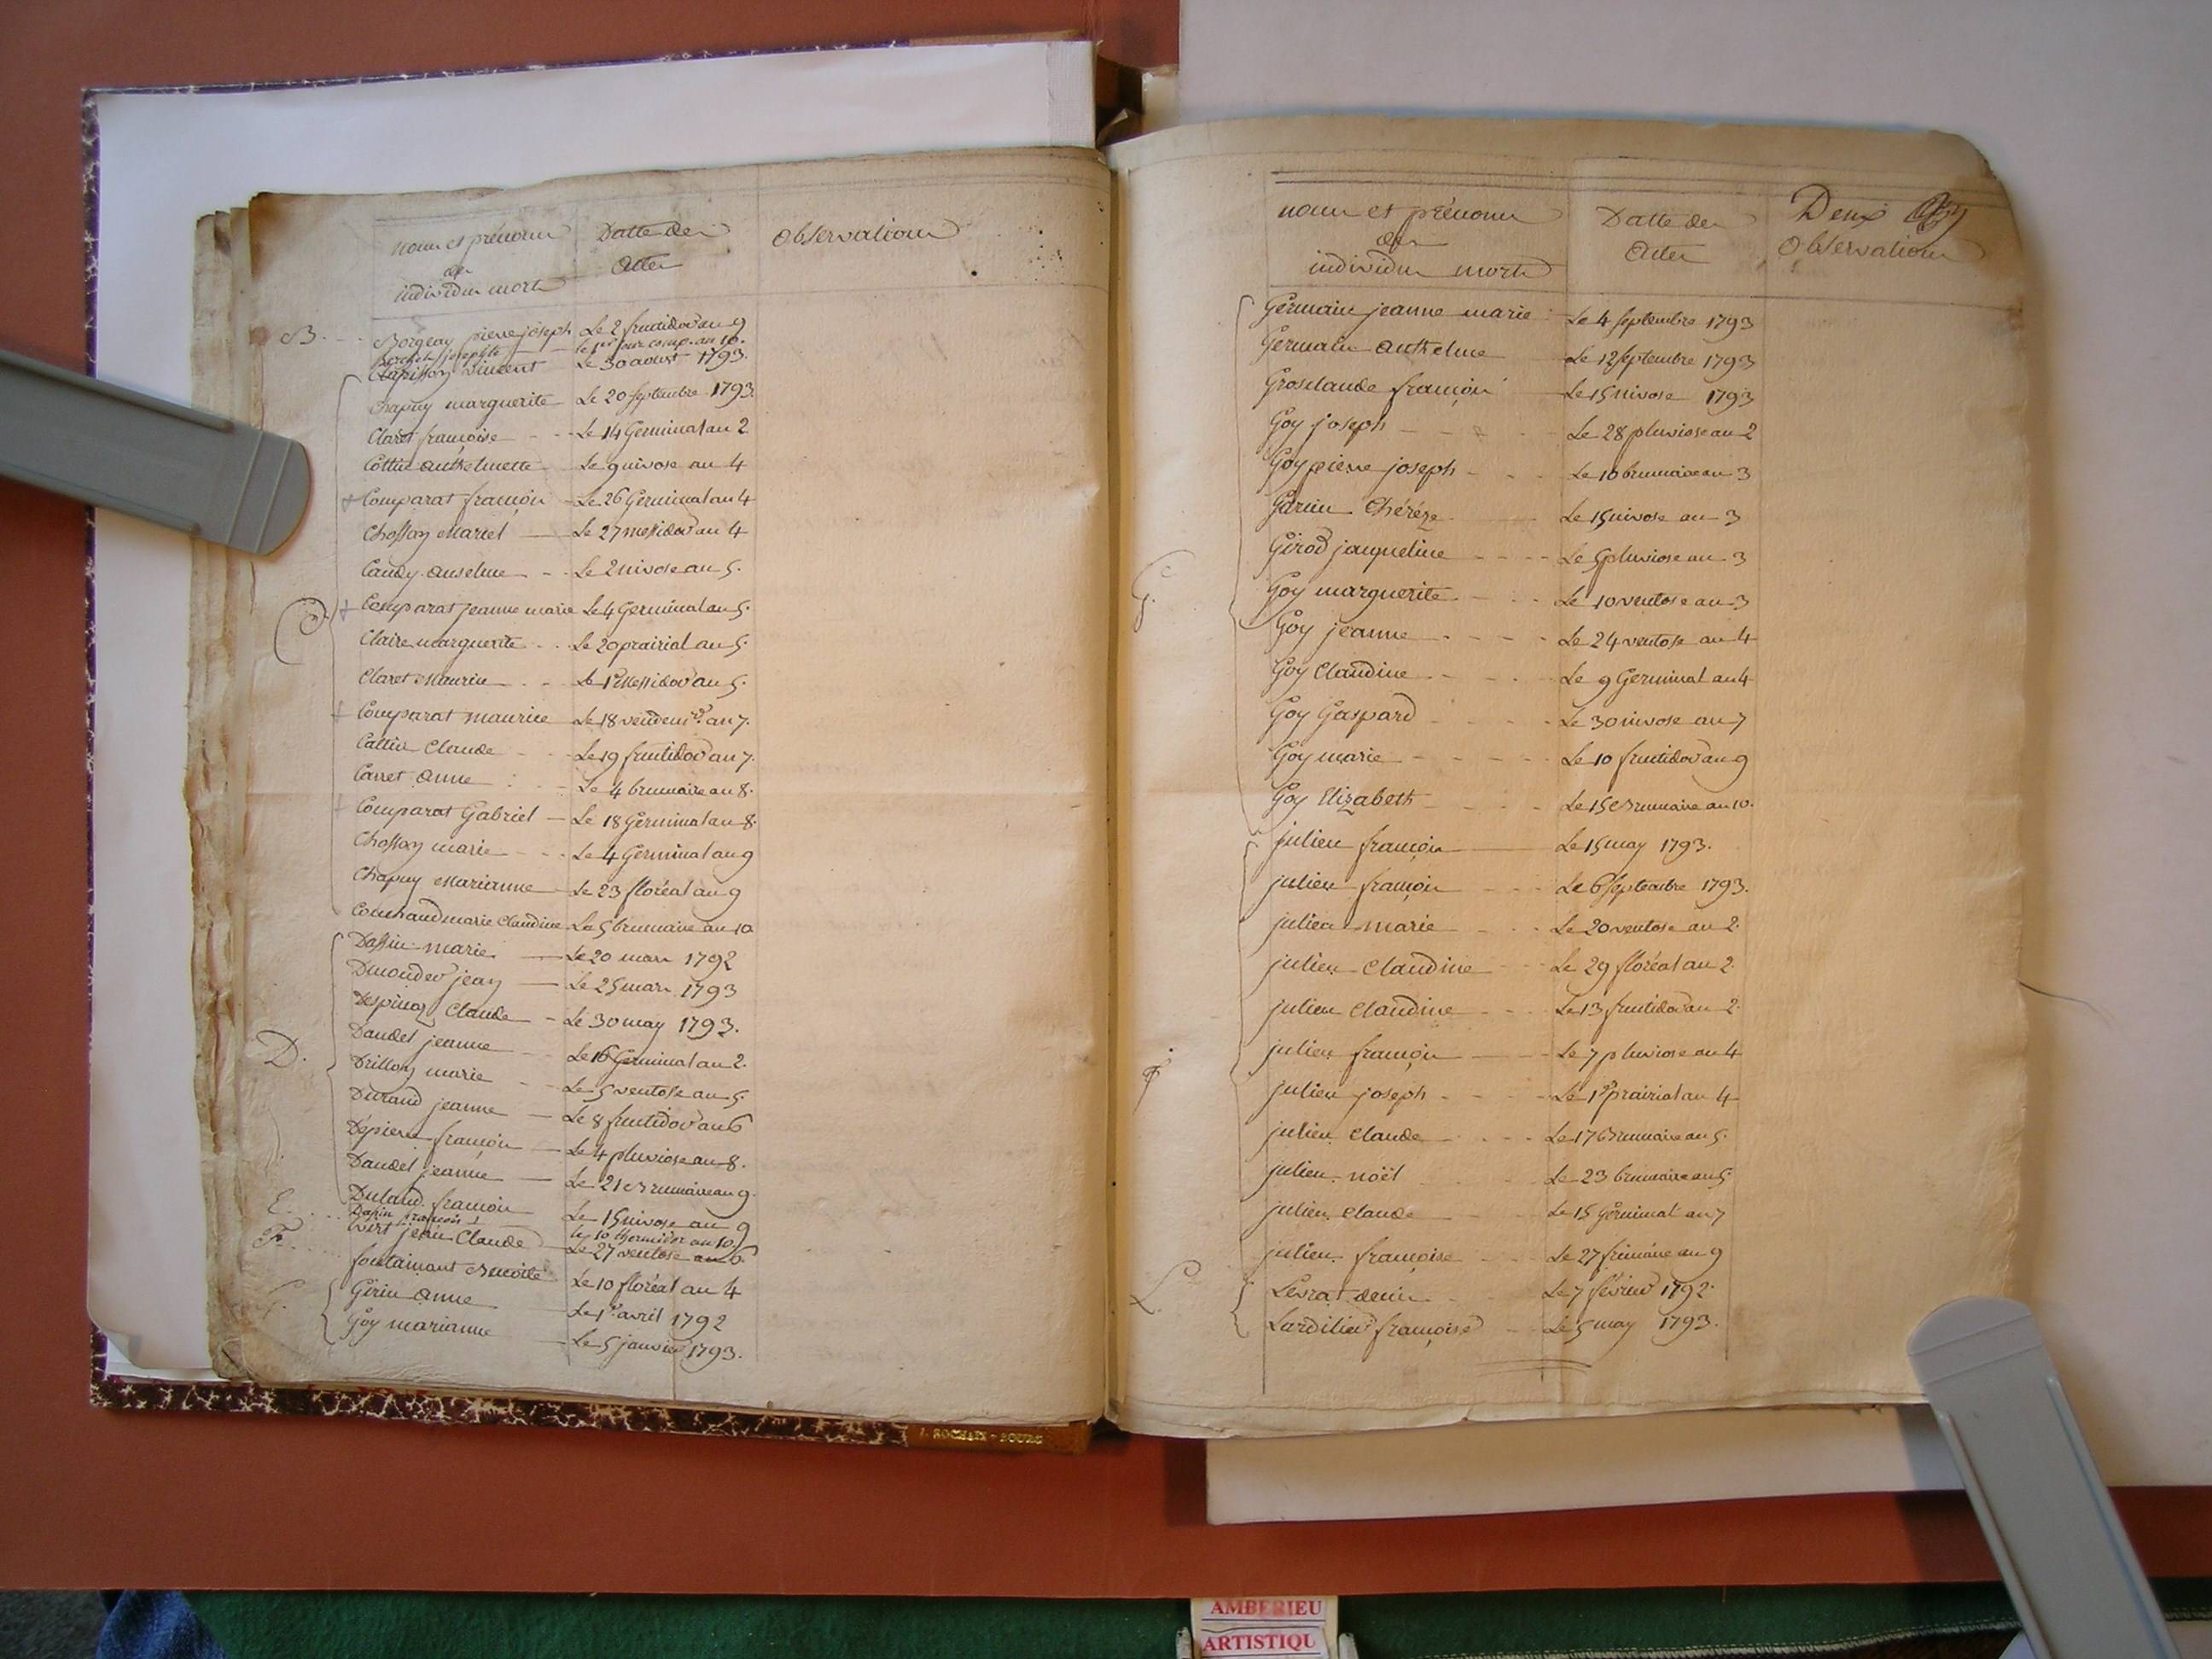 noms et prénoms
des
individus morts
Datte des
Actes
Observations
B. Borgeay pierre joseph Le 2 fructidor an 9
josephte le 1er jour comp. an 10.
Chapisson Vincent Le 30 aoust 1793.
Chapuy marguerite Le 20 septembre 1793.
Claret françoise Le 14 Germinal an 2
Cottin anthelmette Le 9 nivose an 4
+ Comparat françois Le 26 Germinal an 4
Chossoy Martel Le 27 messidor an 4
Caudy anselme Le 2 nivose an 5.
C + Comparat jeanne marie Le 4 Germinal an 5.
Claire marguerite Le 20 prairial an 5.
Claret Maurin Le 1er Messidor an 5.
+ Comparat maurice Le 18 vendemre an 7.
Cattin Claude Le 19 fructidor an 7.
Carret anne Le 4 brumaire an 8.
+ Comparat Gabriel Le 18 Germinal an 8.
Chossoy marie Le 4 Germinal an 9
Chapuy Marianne Le 23 floréal an 9
marie Claudine Le 5 brumaire an 10
Dassin marie Le 20 mars 1792
Dmonder jean Le 25 mars 1793
Despinay Claude Le 30 may 1793.
D. Daudet jeanne Le 16 Germinal an 2.
Drillon marie Le 5 ventose an 5.
Durand jeanne Le 8 fructidor an 6
Dépierre françois Le 4 pluviose an 8.
Daudet jeanne Le 21 Brumaire an 9.
Duland françois Le 15 nivose an 9
Dassin françois Le 10 thermidor an 10.
E. jean Claude Le 27 ventose an 6
F. fontainant Benoite Le 10 floréal an 4
G. Girin anne Le 1er avril 1792
Goy marianne Le 5 janvier 1793.
noms et prénoms
des
individus morts
Datte des
Actes
Deux
Observations
Germain jeanne marie Le 4 septembre 1793
Germain anthelme Le 12 septembre 1793
Grosclaude françois Le 15 nivose 1793
Goy joseph Le 28 pluviose an 2
Goy pierre joseph Le 10 brumaire an 3
Garin thérèze Le 15 nivose an 3
Girod jacqueline Le 5 pluviose an 3
G. Goy marguerite Le 10 ventose an 3
Goy jeanne Le 24 ventose an 4
Goy Claudine Le 9 Germinal an 4
Goy Gaspard Le 30 nivose an 7
Goy marie Le 10 fructidor an 9
Goy Elizabeth Le 15 Brumaire an 10.
julien françois Le 15 may 1793.
julien françois Le 6 septembre 1793.
julien marie Le 20 ventose an 2.
julien Claudine Le 29 floréal an 2.
julien Claudine Le 13 fructidor an 2.
J julien françois Le 7 pluviose an 4
julien joseph Le 1er prairial an 4
julien Claude Le 17 Brumaire an 5.
julien noël Le 23 brumaire an 5.
julien Claude Le 15 Germinal an 7
julien françoise Le 27 frimaire an 9
L. Levrat denis Le 7 février 1792.
Lardilier françoise Le 5 may 1793.
AMBERIEU
ARTISTIQU